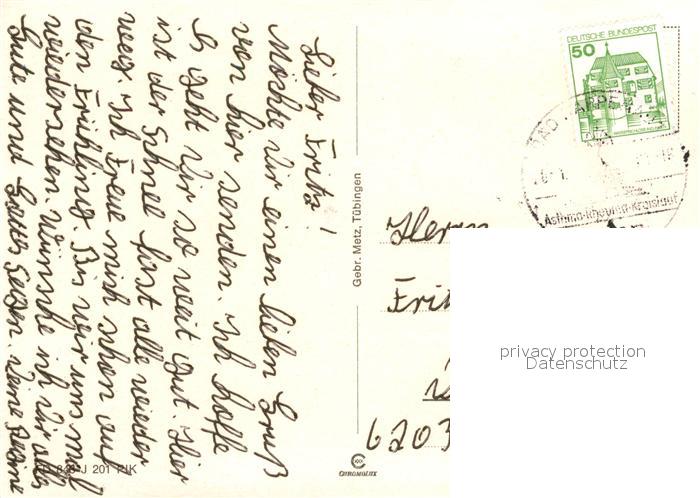 Lieber Fritz!
Möchte Dir einen lieben Gruß
von hier senden. Ich hoffe
es geht Dir so weit gut. Hier
ist der Schnee fast alle wieder
weg. Ich freue mich schon auf
den Frühling. Bis wir uns mal
wiedersehen. Wünsche ich Dir alles
Gute und Gottes Segen. Deine
Gebr. Metz, Tübingen
DEUTSCHE BUNDESPOST
50
Asthma-Rheuma-Kreislauf
Herrn
6203
privacy protection
Datenschutz
CHROMOLUX
201 PJK